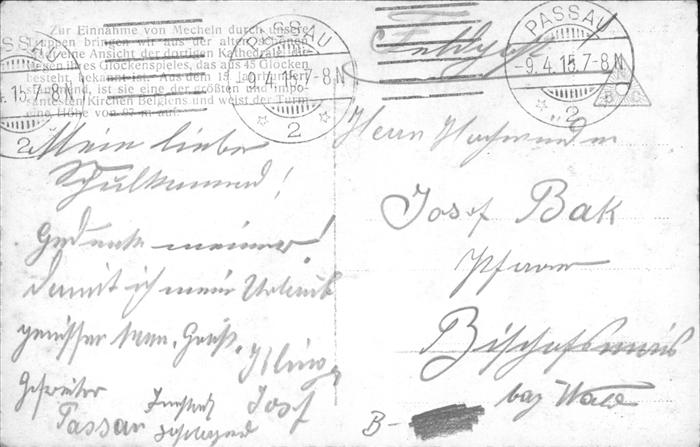 Zur Einnahme von Mecheln durch unsere
Truppen bringen wir aus der alten
eine Ansicht der dortigen Kathedrale,
ihres Glockenspieles, das aus 45 Glocken
besteht, bekannt ist. Aus dem 15. Jahrhundert
stammend, ist sie eine der größten und impo-
santesten Kirchen Belgiens und weist der Turm
eine Höhe von 97 m auf.
PASSAU
9.4.15.7-8N
2
PASSAU
9.4.15.7-8N
2
PASSAU
-9.4.15.7-8N
2
Feldpost
Mein lieber
Schulkamerad!
Gedenke meiner!
damit ich mein Urlaub
genießen kann. Gruß.
Josef
Gefreiter
Passau
Herrn
Josef Bak
Pfarrer
Bischofsmais
bay Wald
B-